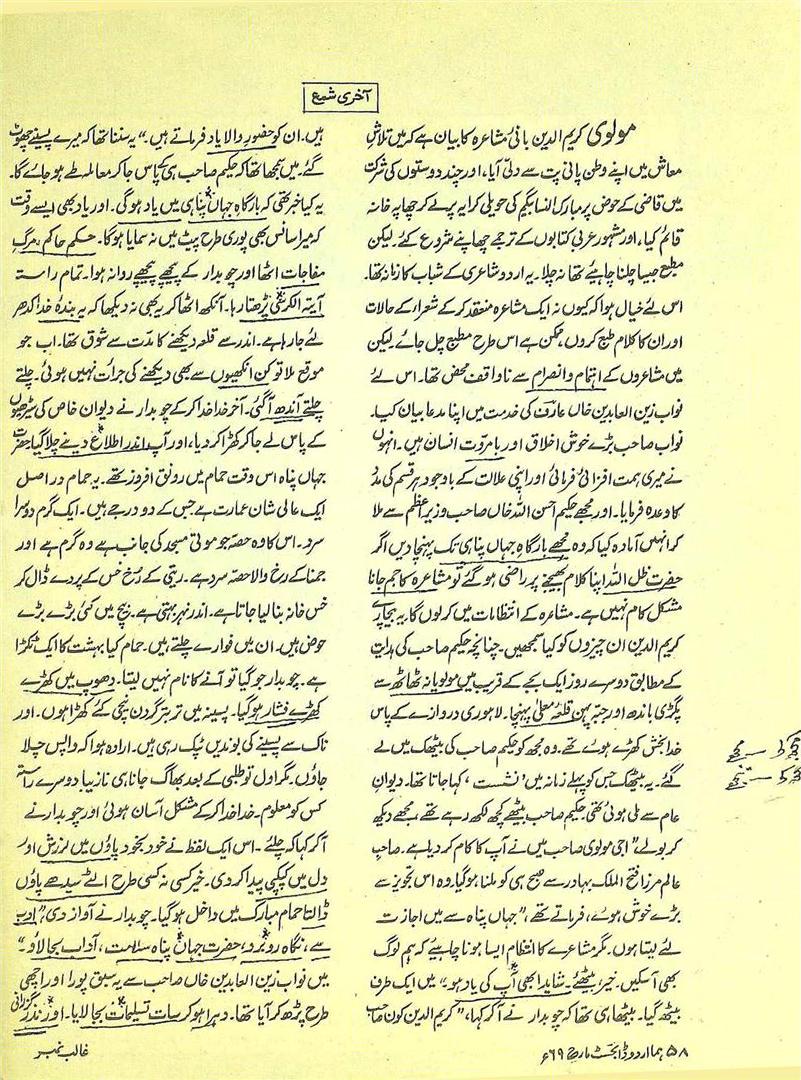 آخری شمع
مولوی کریم الدین بانیٔ مشاعرہ کا بیان ہے کہ میں تلاشِ
معاش میں اپنے وطن پانی پت سے دلّی آیا، اور چند دوستوں کی شرکت
میں قاضی کے حوض پر مبارک النسا بیگم کی حویلی کرایہ پر لے کر چھاپہ خانہ
قائم کیا، اور مشہور عربی کتابوں کے ترجمے چھاپنے شروع کئے۔ لیکن
مطبع جیسا چلنا چاہیئے تھا نہ چلا۔ یہ اردو شاعری کے شباب کا زمانہ تھا۔
اس لئے خیال ہوا کہ کیوں نہ ایک مشاعرہ منعقد کر کے شعراء کے حالات
اور ان کا کلام طبع کروں، ممکن ہے اس طرح مطبع چل جائے۔ لیکن
میں مشاعروں کے اہتمام و انصرام سے ناواقف محض تھا۔ اس لئے
نواب زین العابدین خاں عارف کی خدمت میں اپنا مدعا بیان کیا۔
نواب صاحب بڑے خوش اخلاق اور بامروّت انسان ہیں۔ انہوں
نے میری ہمت افزائی فرمائی اور اپنی علالت کے باوجود ہر قسم کی مدد
کا وعدہ فرمایا۔ اور مجھے حکیم احسن اللہ خاں صاحب وزیراعظم سے ملا
کر انہیں آمادہ کیا کہ وہ مجھے بارگاہِ جہاں پناہی تک پہنچا دیں اگر
حضرت ظل اللہ اپنا کلام بھیجنے پر راضی ہو گئے تو مشاعرہ کا جم جانا
مشکل کام نہیں ہے۔ مشاعرہ کے انتظامات میں کر لوں گا۔ یہ بیچارے
کریم الدین ان چیزوں کو کیا سمجھیں۔ چنانچہ حکیم صاحب کی ہدایت
کے مطابق دوسرے روز ایک بجے کے قریب میں مولویانہ ٹھاٹھ سے
پگڑی باندھ اور جبّہ پہن قلعہ معلّی پہنچا۔ لاہوری دروازے کے پاس
خدا بخش کھڑے ہوئے تھے۔ وہ مجھ کو حکیم صاحب کی بیٹھک میں لے
گئے۔ یہ بیٹھک جس کو پہلے زمانہ میں "نشست" کہا جاتا تھا۔ دیوان
عام سے ملی ہوئی تھی۔ حکیم صاحب بیٹھے کچھ لکھ رہے تھے، مجھے دیکھ
کر بولے، "اجی مولوی صاحب میں نے آپ کا کام کر دیا ہے۔ صاحبِ
عالم مرزا فتح الملک بہادر سے صبح ہی کو ملنا ہو گیا۔ وہ اس تجویز سے
بڑے خوش ہوئے، فرماتے تھے، "جہاں پناہ سے میں اجازت
لئے لیتا ہوں۔ مگر مشاعرے کا انتظام ایسا ہونا چاہیئے کہ ہم لوگ
بھی آ سکیں۔ خیر، بیٹھئے۔ شاید ابھی آپ کی یاد ہو۔" میں ایک طرف
بیٹھ گیا۔ بیٹھا ہی تھا کہ چوبدار نے آ کر کہا، "کریم الدین کون صاحب
ہیں۔ ان کو حضورِ والا یاد فرماتے ہیں۔" یہ سننا تھا کہ میرے پسینے چھوٹ
گئے۔ میں سمجھا تھا کہ حکیم صاحب ہی کے پاس جا کر معاملہ طے ہو جائے گا۔
یہ کیا خبر تھی کہ بارگاہِ جہاں پناہی میں یاد ہو گی۔ اور یاد بھی ایسے وقت
کہ میرا سانس بھی پوری طرح پیٹ میں نہ سمایا ہو گا۔ حکمِ حاکم، مرگِ
مفاجات اٹھا اور چوبدار کے پیچھے پیچھے روانہ ہوا۔ تمام راستہ
آیتہ الکرسی پڑھتا رہا۔ آنکھ اٹھا کر یہ بھی نہ دیکھا کہ یہ بندۂ خدا کدھر
لئے جا رہا ہے۔ اندر سے قلعہ دیکھنے کا مدت سے شوق تھا۔ اب جو
موقع ملا تو کن انکھیوں سے بھی دیکھنے کی جرأت نہیں ہوئی۔ چلتے
چلتے آندھ آ گئی۔ آخر خدا خدا کر کے چوبدار نے دیوان خاص کی سیڑھیوں
کے پاس لے جا کر کھڑا کر دیا، اور آپ اندر اطلاع دینے چلا گیا۔ حضرت
جہاں پناہ اس وقت حمام میں رونق افروز تھے۔ یہ حمام در اصل
ایک عالی شان عمارت ہے جس کے دو درجے ہیں۔ ایک گرم دوسرا
سرد۔ اس کا وہ حصہ جو موتی مسجد کی جانب ہے وہ گرم ہے اور
جمنا کے رخ والا حصہ سرد ہے۔ ریتی کے رخ خس کے پردے ڈال کر
خس خانہ بنا لیا جاتا ہے۔ اندر نہر بہتی ہے۔ بیچ میں کئی بڑے بڑے
حوض ہیں۔ ان میں فوارے چلتے ہیں۔ حمام کیا بہشت کا ایک ٹکڑا
ہے۔ چوبدار جو گیا تو آنے کا نام نہیں لیتا۔ دھوپ میں کھڑے
کھڑے فشار ہو گیا۔ پسینہ میں تر بتر گردن نیچی کئے کھڑا ہوں۔ اور
ناک سے پسینے کی بوندیں ٹپک رہی ہیں۔ ارادہ ہوا کہ واپس چلا
جاؤں۔ مگر اول تو طلبی کے بعد بھاگ جانا ہی نازیبا دوسرے راستہ
کس کو معلوم۔ خدا خدا کر کے مشکل آسان ہوئی اور چوبدار نے
آ کر کہا کہ چلئے۔ اس ایک لفظ نے خود بخود پاؤں میں لرزش اور
دل میں کپکپی پیدا کر دی۔ خیر کسی نہ کسی طرح الٹے سیدھے پاؤں
ڈالتا حمام مبارک میں داخل ہو گیا۔ چوبدار نے آواز دی، "ادب
سے، نگاہ روبرو، حضرت جہاں پناہ سلامت، آداب بجا لاؤ۔"
میں نواب زین العابدین خاں صاحب سے یہ سبق پورا اور اچھی
طرح پڑھ کر آیا تھا۔ دہرا ہو کر سات تسلیمات بجا لایا۔ اور نذر گزرانی
۵۸ ہما اردو ڈائجسٹ مارچ ۶۹ء
غالب نمبر